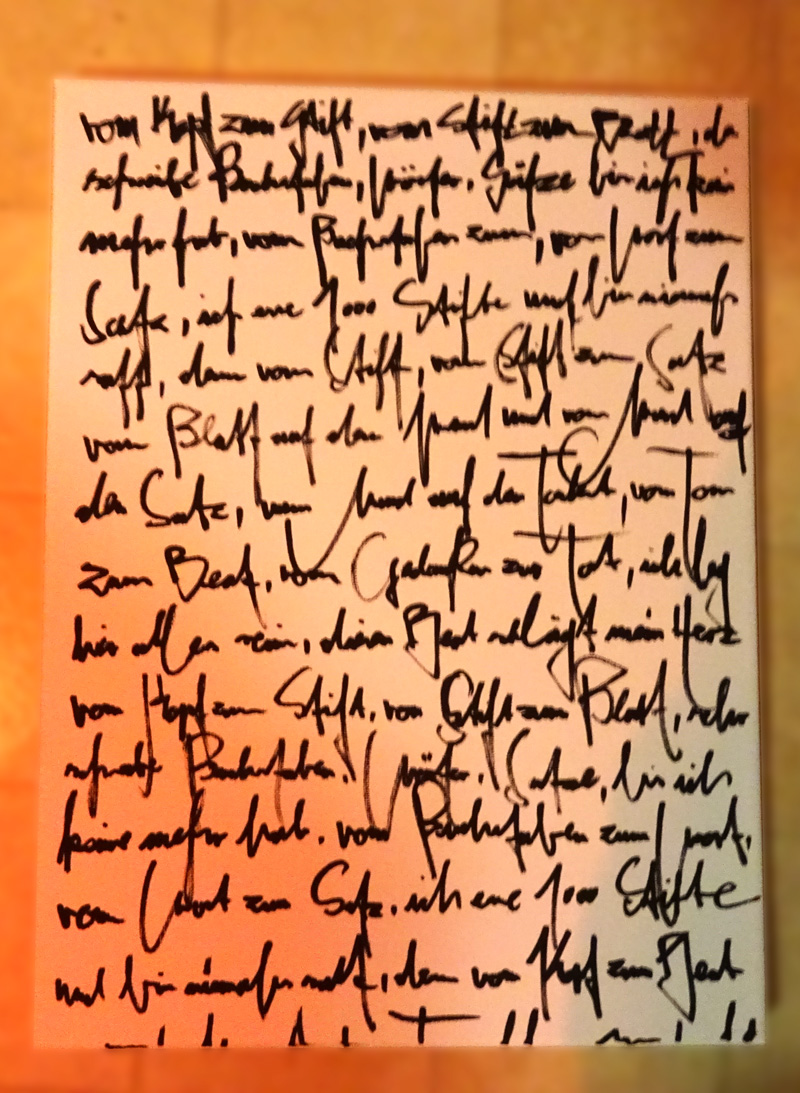 vom Kopf zum Stift, vom Stift zum Blatt, ich
schreibe Buchstaben, Wörter, Sätze bis ich kein
mehr hab, vom Buchstaben zum, vom Wort zum
Satz, ich ene 1000 Stifte und bin niemals
satt, denn vom Stift, vom Stift zum Satz
vom Blatt auf den Mund und vom Mund auf
den Satz, vom Mund auf den, vom Ton
zum Beat, vom Gedanken zur Tat, ich leg
hier alles rein, dieser Beat schlägt mein Herz
vom Kopf zum Stift, von Stift zum Blatt,
schreibe Buchstaben, Wörter, Sätze, bis ich
keine mehr hab, vom Buchstaben zum Wort,
vom Wort zum Satz, ich ene 1000 Stifte
und bin niemals satt, denn vom Kopf zum Beat